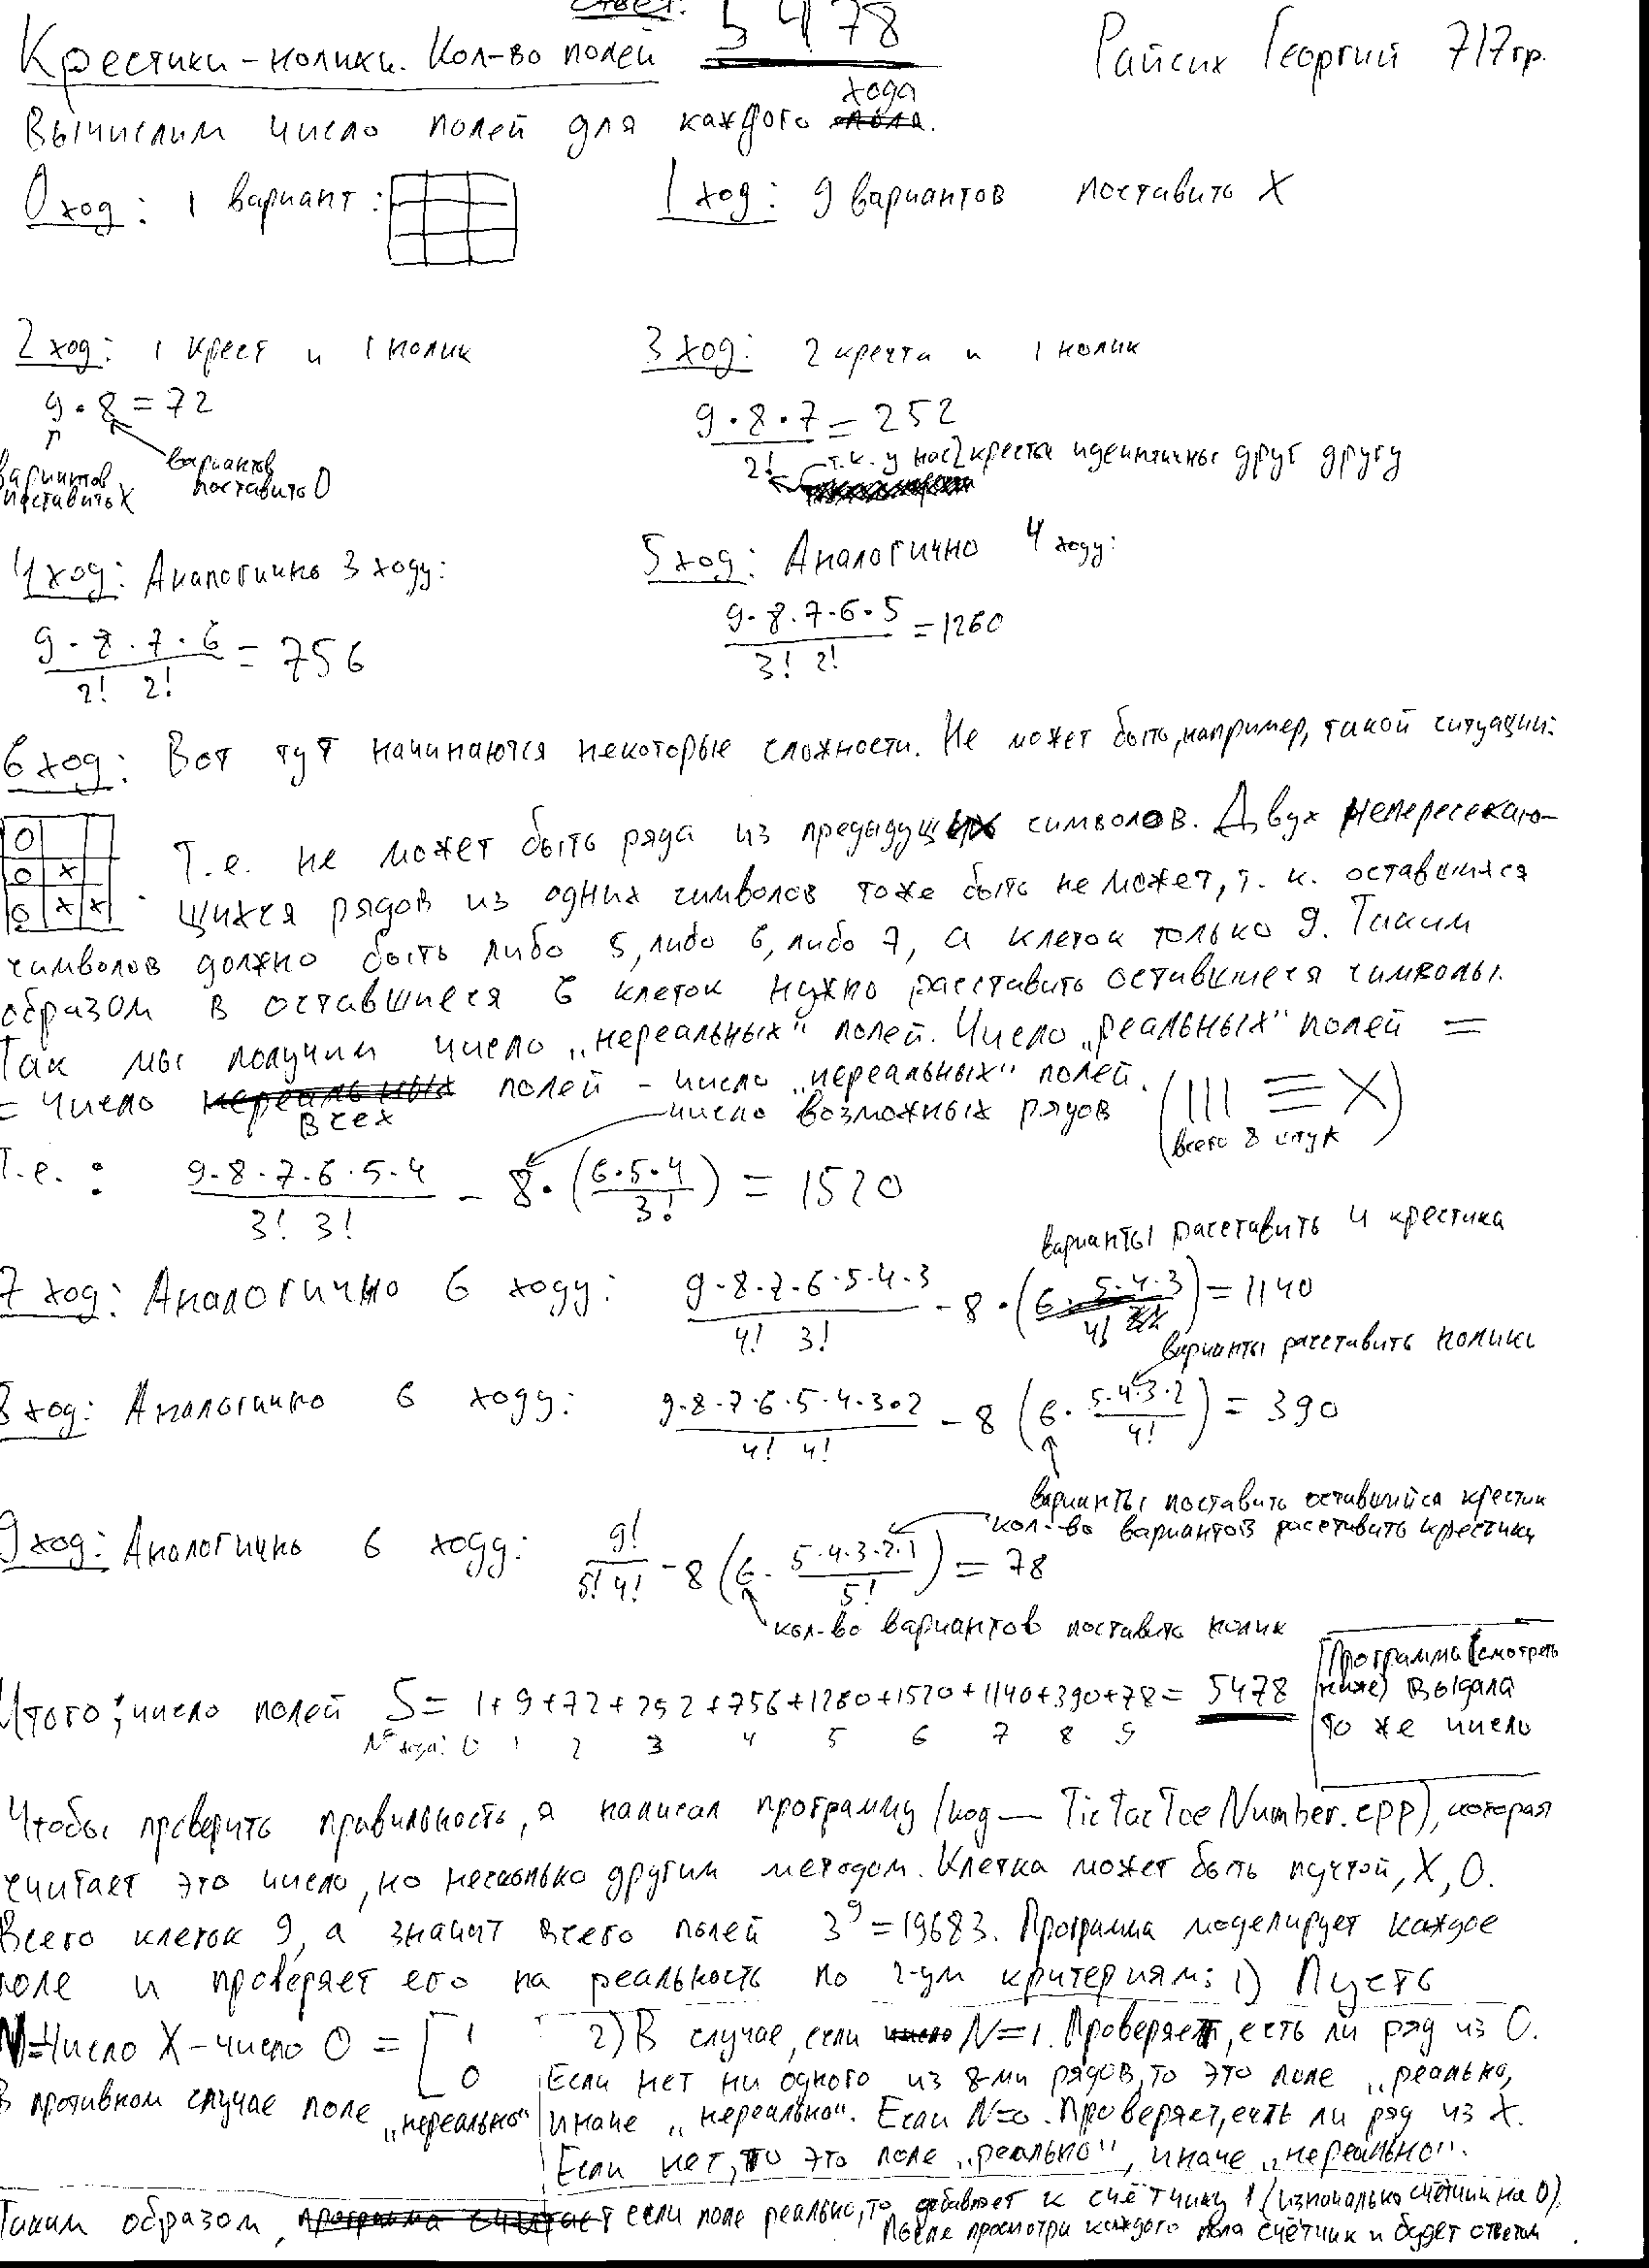 Ответ:
Крестики-нолики. Кол-во полей 5478
Райсих Георгий 717гр.
Вычислим число полей для каждого хода.
0 ход: 1 вариант:
1 ход: 9 вариантов поставить X
2 ход: 1 крест и 1 нолик
9·8=72
вариантов поставить X
вариантов поставить O
3 ход: 2 креста и 1 нолик
9·8·7/2! = 252
т.к. у нас 2 креста идентичны друг другу
4 ход: Аналогично 3 ходу:
9·8·7·6/2! 2! = 756
5 ход: Аналогично 4 ходу:
9·8·7·6·5/3! 2! = 1260
6 ход: Вот тут начинаются некоторые сложности. Не может быть, например, такой ситуации:
O
O X
O X X
. Т.е. не может быть ряда из предыдущих символов. Двух непересекаю-
щихся рядов из одних символов тоже быть не может, т.к. оставшихся
символов должно быть либо 5, либо 6, либо 7, а клеток только 9. Таким
образом в оставшиеся 6 клеток нужно расставить оставшиеся символы.
Так мы получим число „нереальных" полей. Число „реальных" полей =
= число всех полей - число „нереальных" полей.
число возможных рядов (||| ≡ X)
(всего 8 штук)
Т.е.: 9·8·7·6·5·4/3! 3! - 8·(6·5·4/3!) = 1520
варианты расставить 4 крестика
7 ход: Аналогично 6 ходу: 9·8·7·6·5·4·3/4! 3! - 8·(6·5·4·3/4!) = 1140
варианты расставить нолики
8 ход: Аналогично 6 ходу: 9·8·7·6·5·4·3·2/4! 4! - 8(6·5·4·3·2/4!) = 390
варианты поставить оставшийся крестик
кол-во вариантов расставить крестики
9 ход: Аналогично 6 ходу: 9!/5! 4! - 8(6·5·4·3·2·1/5!) = 78
кол-во вариантов поставить нолик
Итого: число полей S= 1+9+72+252+756+1260+1520+1140+390+78= 5478
№ хода: 0 1 2 3 4 5 6 7 8 9
Программа (смотреть
ниже) выдала
то же число
Чтобы проверить правильность, я написал программу (код — TicTacToeNumber.cpp), которая
считает это число, но несколько другим методом. Клетка может быть пустой, X, O.
Всего клеток 9, а значит всего полей 3^9=19683. Программа моделирует каждое
поле и проверяет его на реальность по 2-ум критериям: 1) Пусть
N=Число X-число O = [1
0
В противном случае поле „нереально"
2) В случае, если N=1. Проверяет, есть ли ряд из O.
Если нет ни одного из 8-ми рядов, то это поле „реально,
иначе „нереально". Если N=0. Проверяет, есть ли ряд из X.
Если нет, то это поле „реально", иначе „нереально".
Таким образом, если поле реально, то добавляет к счётчику 1 (изначально счётчик на 0).
После просмотра каждого поля счётчик и будет ответом.